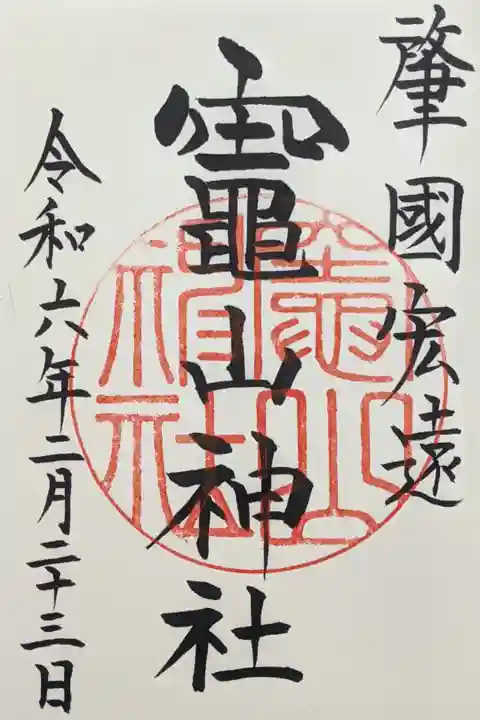 肇國宏遠
竈山神社
竈山神社
令和六年二月二十三日